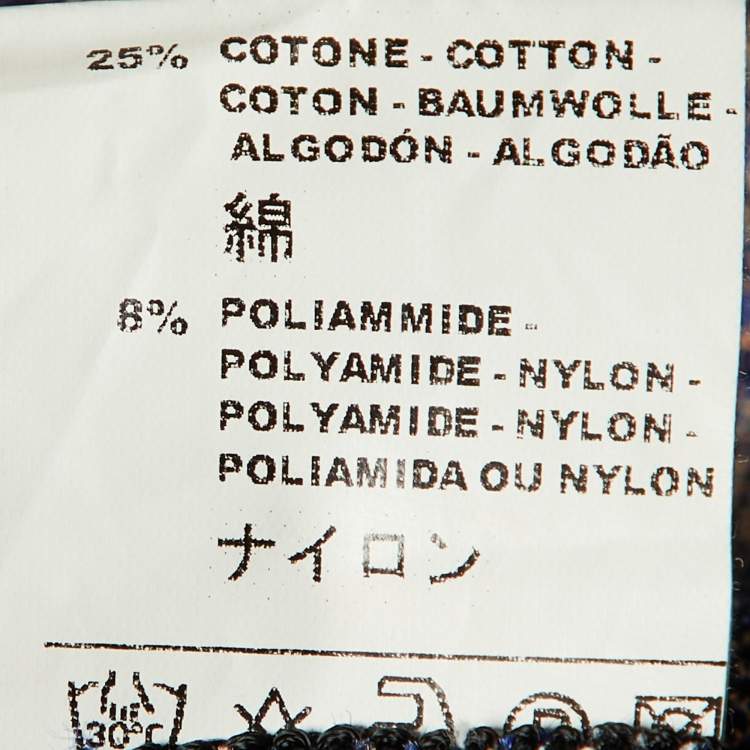 25% COTONE - COTTON -
COTON - BAUMWOLLE -
ALGODÓN - ALGODÃO
綿
8% POLIAMMIDE -
POLYAMIDE - NYLON -
POLYAMIDE - NYLON -
POLIAMIDA OU NYLON
ナイロン
30°C P